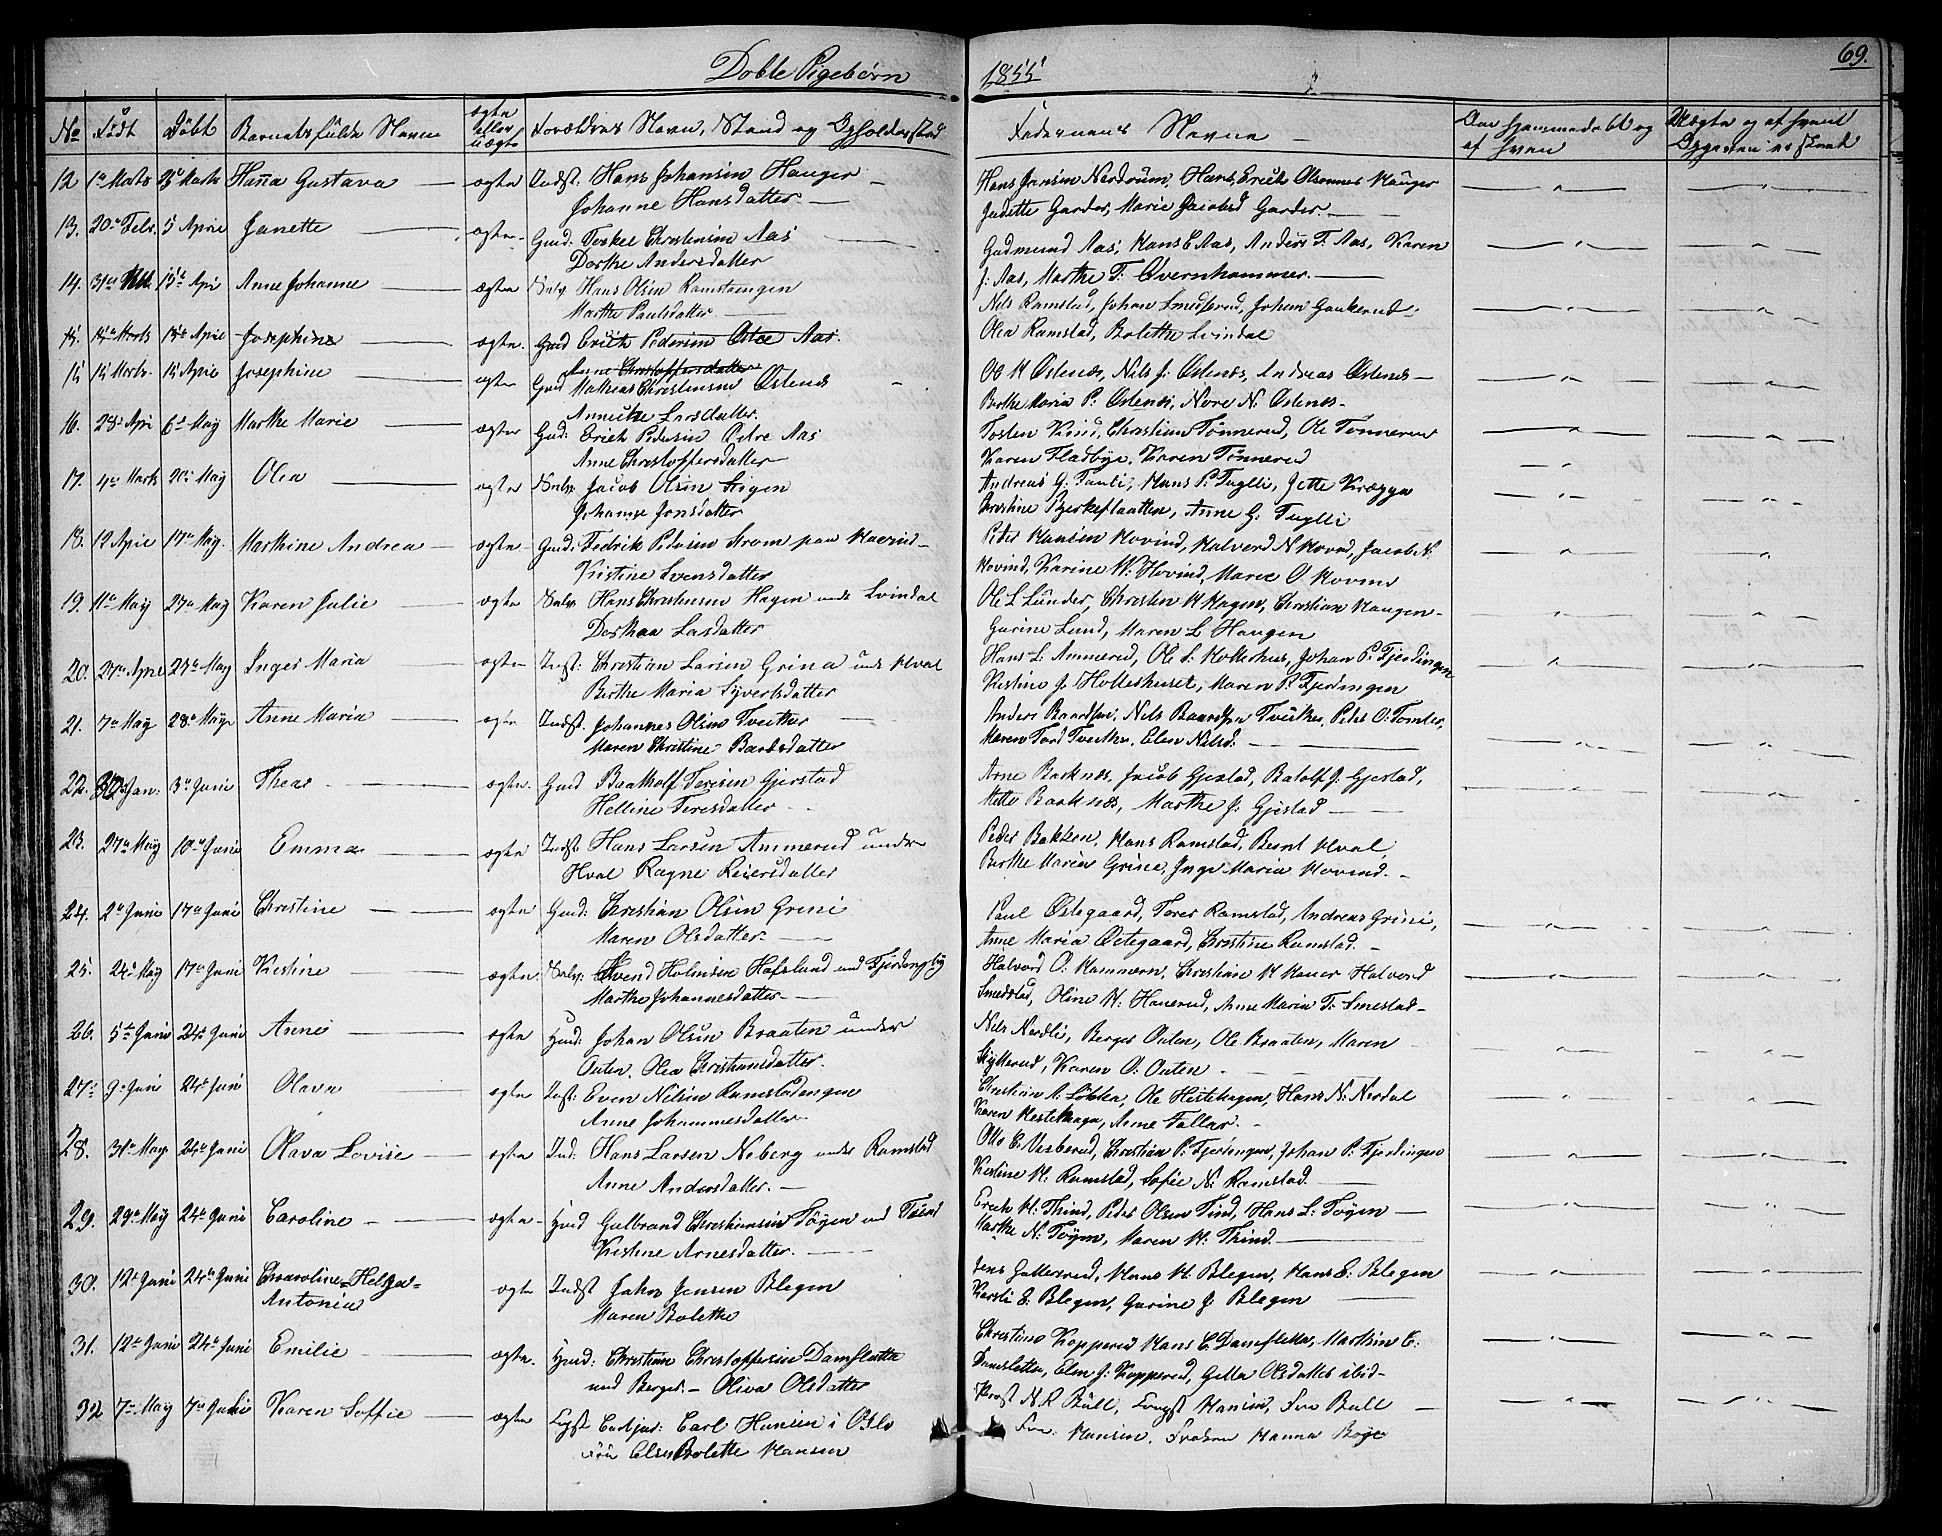 Døbte Pigebørn
1855
69.
No Født Døbt Barnets fulde Navn ægte eller uægte Forældres Navn, Stand og Opholdssted
Faddernes Navne
Om hjemmedøbt og af hvem
Uægte og af hvem Opgaven er skeet
12 1ste Marts 25de Marts Hanna Gustava ægte Indst: Hans Johansen Hauger
Johanne Hansdatter
Hans Jansen Nordrum, Hans, Erich Olsennes Hauger
Judette Garder, Marie Jacobsd Garder.
13. 20de Febr. 5 April Janette ægte Gmd: Torkel Christensen Aas
Dorthe Andersdatter
Gudmund Aas, Hans E Aas, Anders T. Aas, Karen
J: Aas, Marthe T. Øvernhammer.
14. 15de Apri Anne Johanne ægte Selv Hans Olsen Ramstaengen
Marthe Paulsdatter
Nils Ramstad, Johan Smedsrud, Johan Gaukerud
Olea Ramstad, Bolette Lvindal
15. 15de Marts 15de April Josephine ægte. Gmd Erich Pedersen Østre Aas.
Anne Christoffersdatter
15 15 Marts. 15 April Josephine ægte Gmd Mathias Christensen Østenes
Larsdatter.
Ol H Østenes, Nils J: Østenes, Andreas Østenes
Berthe Maria P: Østenes, Nore N: Østenes.
16. 28de Apri 6te May Marthe Marie ægte Gmd: Erich Pedersen Østre Aas
Anne Christoffersdatter
Tosten Kind, Christian Tønnerud, Ole Tønnerud
Karen Fladbye, Karen Tønnerud
17. 4de Marts 20de May Olea ægte Selv Jacob Olsen Stigen
Johanne Jonsdatter
Andreas G: Tueli, Hans P. Tuglli, Jette Krægge
Christine Bjerkeflaatten, Anne G: Tuglli
18. 12 April 17de May. Marthine Andrea ægte Gmd: Fedrik Pedersen Strom paa Haerud
Kristine Svensdatter
Peder Hansen Hovind, Halverd N Hovind, Jacob N.
Hovind, Karine W: Hovind, Maree O. Hovind
19. 11te May 27de May Karen Julie ægte Selv Hans Christensen Hagen unde Lvindal
Dorthea Lasdatter
Ole L Lunder, Christen H Hagen, Christian Haugen
Gurine Lund, Maren L Haugen
20. 27de Apri 28de May Inger Maria ægte Indst: Christian Larsen Grina und Hval
Berthe Maria Syversdatter
Hans L: Ammerud, Ole S: Holterhus, Johan P: Fjerdingen
Kristine J. Holteshuset, Maren P. Fjerdingen
21. 7de May 28de May Anne Maria ægte Indst. Johannes Olsen Tveither
Maren Christine Baardsdatter
Anders Baardsen, Nils Baardsen Tveither, Peder O. Tomter,
Maren Tveither, Elen Nilsd.
22. 30 Jan: 3de Juni Thea ægte Gmd Baathol Toresen Gjerstad
Helline Toresdatter
Arne Barknæs, Jacob Gjestad, Batolf J. Gjestad,
Mette Barknæs, Marthe J. Gjestad
23. 27de May 10de Juni Emma ægte Indst Hans Larsen Ammerud under
Hval Ragne Reiersdatter
Peder Bakken, Hans Ramstad, Bernt Hval,
Berthe Maria Grine, Inge Maria Hovind.
24. 2de Juni 17de Juni Christine ægte Gmd: Christian Olsen Grini
Maren Olsdatter.
Paul Østegaard, Tores Ramstad, Andreas Grini,
Anne Maria Østegaard, Christine Ramstad.
25. 24de May 17de Juni Kristine ægte Selv: Svend Holmsen Hafslund und Fjerdingby
Marthe Johannesdatter
Halvord O: Hammern, Christian H Hauer Halvord
Smedstad, Oline H: Hauerud, Anne Maria T: Smestad
26. 5te Juni 24de Juni Anne ægte Hmd: Johan Olsen Braaten under
Outen. Olea Christiansdatter.
Nils Nordli, Berger Outen, Ole Braaten, Maren
Skytterud, Karen O. Outen
27. 9de Juni 24de Juni Olava ægte Indst: Even Nilsen Ramstadengen
Anne Johannesdatter
Christian A. Løkka, Ole Hestehagen, Hans N. Nordal
Karen Hestehagen, Anne Tallar.
28. 31te May 24de Juni Olava Lovise ægte Ind: Hans Larsen Neberg under Ramstad
Anne Andersdatter.
Otto E: Visberud, Christian P. Fjerdingen, Johan P. Fjerdingen
Kristine H. Ramstad, Sofie N. Ramstad
29. 29de May 24de Juni Caroline ægte Hmd Gulbrand Christiansen Tøyen und Tøiend
Kristine Arnesdatter.
Erich H. Thind, Peder Olsen Tind, Hans L: Tøyen
Marthe N. Tøyen, Maren H. Thind.
30. 12te Juni 24de Juni Charoline Helga
Antonia ægte Indst John Jensen Blegen
Maren Bolethe
Jens Gullerud, Hans H. Blegen, Hans E: Blegen
Karoli E. Blegen, Gurine J. Blegen
31. 12te Juni 24de Juni Emilie ægte. Hmd: Christian Christoffersen Damslætta
und Berger. Oliva Olsdatter
Christine Kopperud Hans E Damsletta, Marthin E:
Damsletta, Elen J: Kopperud, Gutta Olsdatter ibid
32 7de May 7de Juli Karen Soffie ægte Cand jur: Carl Hansen i Oslo
Else Bolette Hansen
Prost N R Bull, Hansen, Fru Bull
Fru Hansen, Frøken Hanna Boye